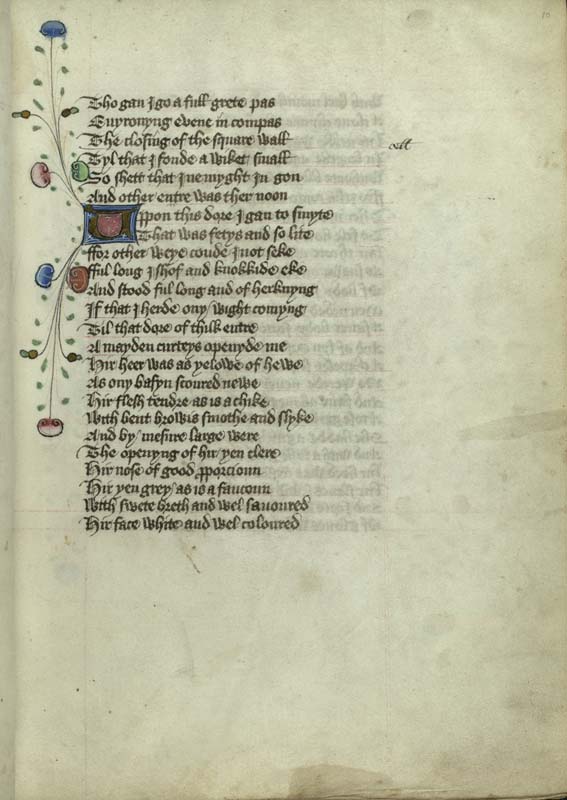 10
Tho gan I go a full grete pas
Enuyronyng evene in compas
The closing of the square wall
Tyl that I fonde a wiket small
So shett that I ne myght In gon
And other entre was ther noon
Uppon this dore I gan to smyte
That was fetys and so lite
ffor other weye coude I not seke
fful long I shof and knokkide eke
And stood ful long and of herknyng
If that I herde ony wight comyng
Til that dore of thilk entre
A mayden curteys openyde me
Hir heer was as yelowe of hewe
As ony basyn scoured newe
Hir flesh tendre as is a chike
With bent browis smothe and slyke
And by mesure large were
The openyng of hir yen clere
Hir nose of good ꝓporcioun
Hir yen grey as is a faucoun
With swete breth and wel savoured
Hir face white and wel coloured